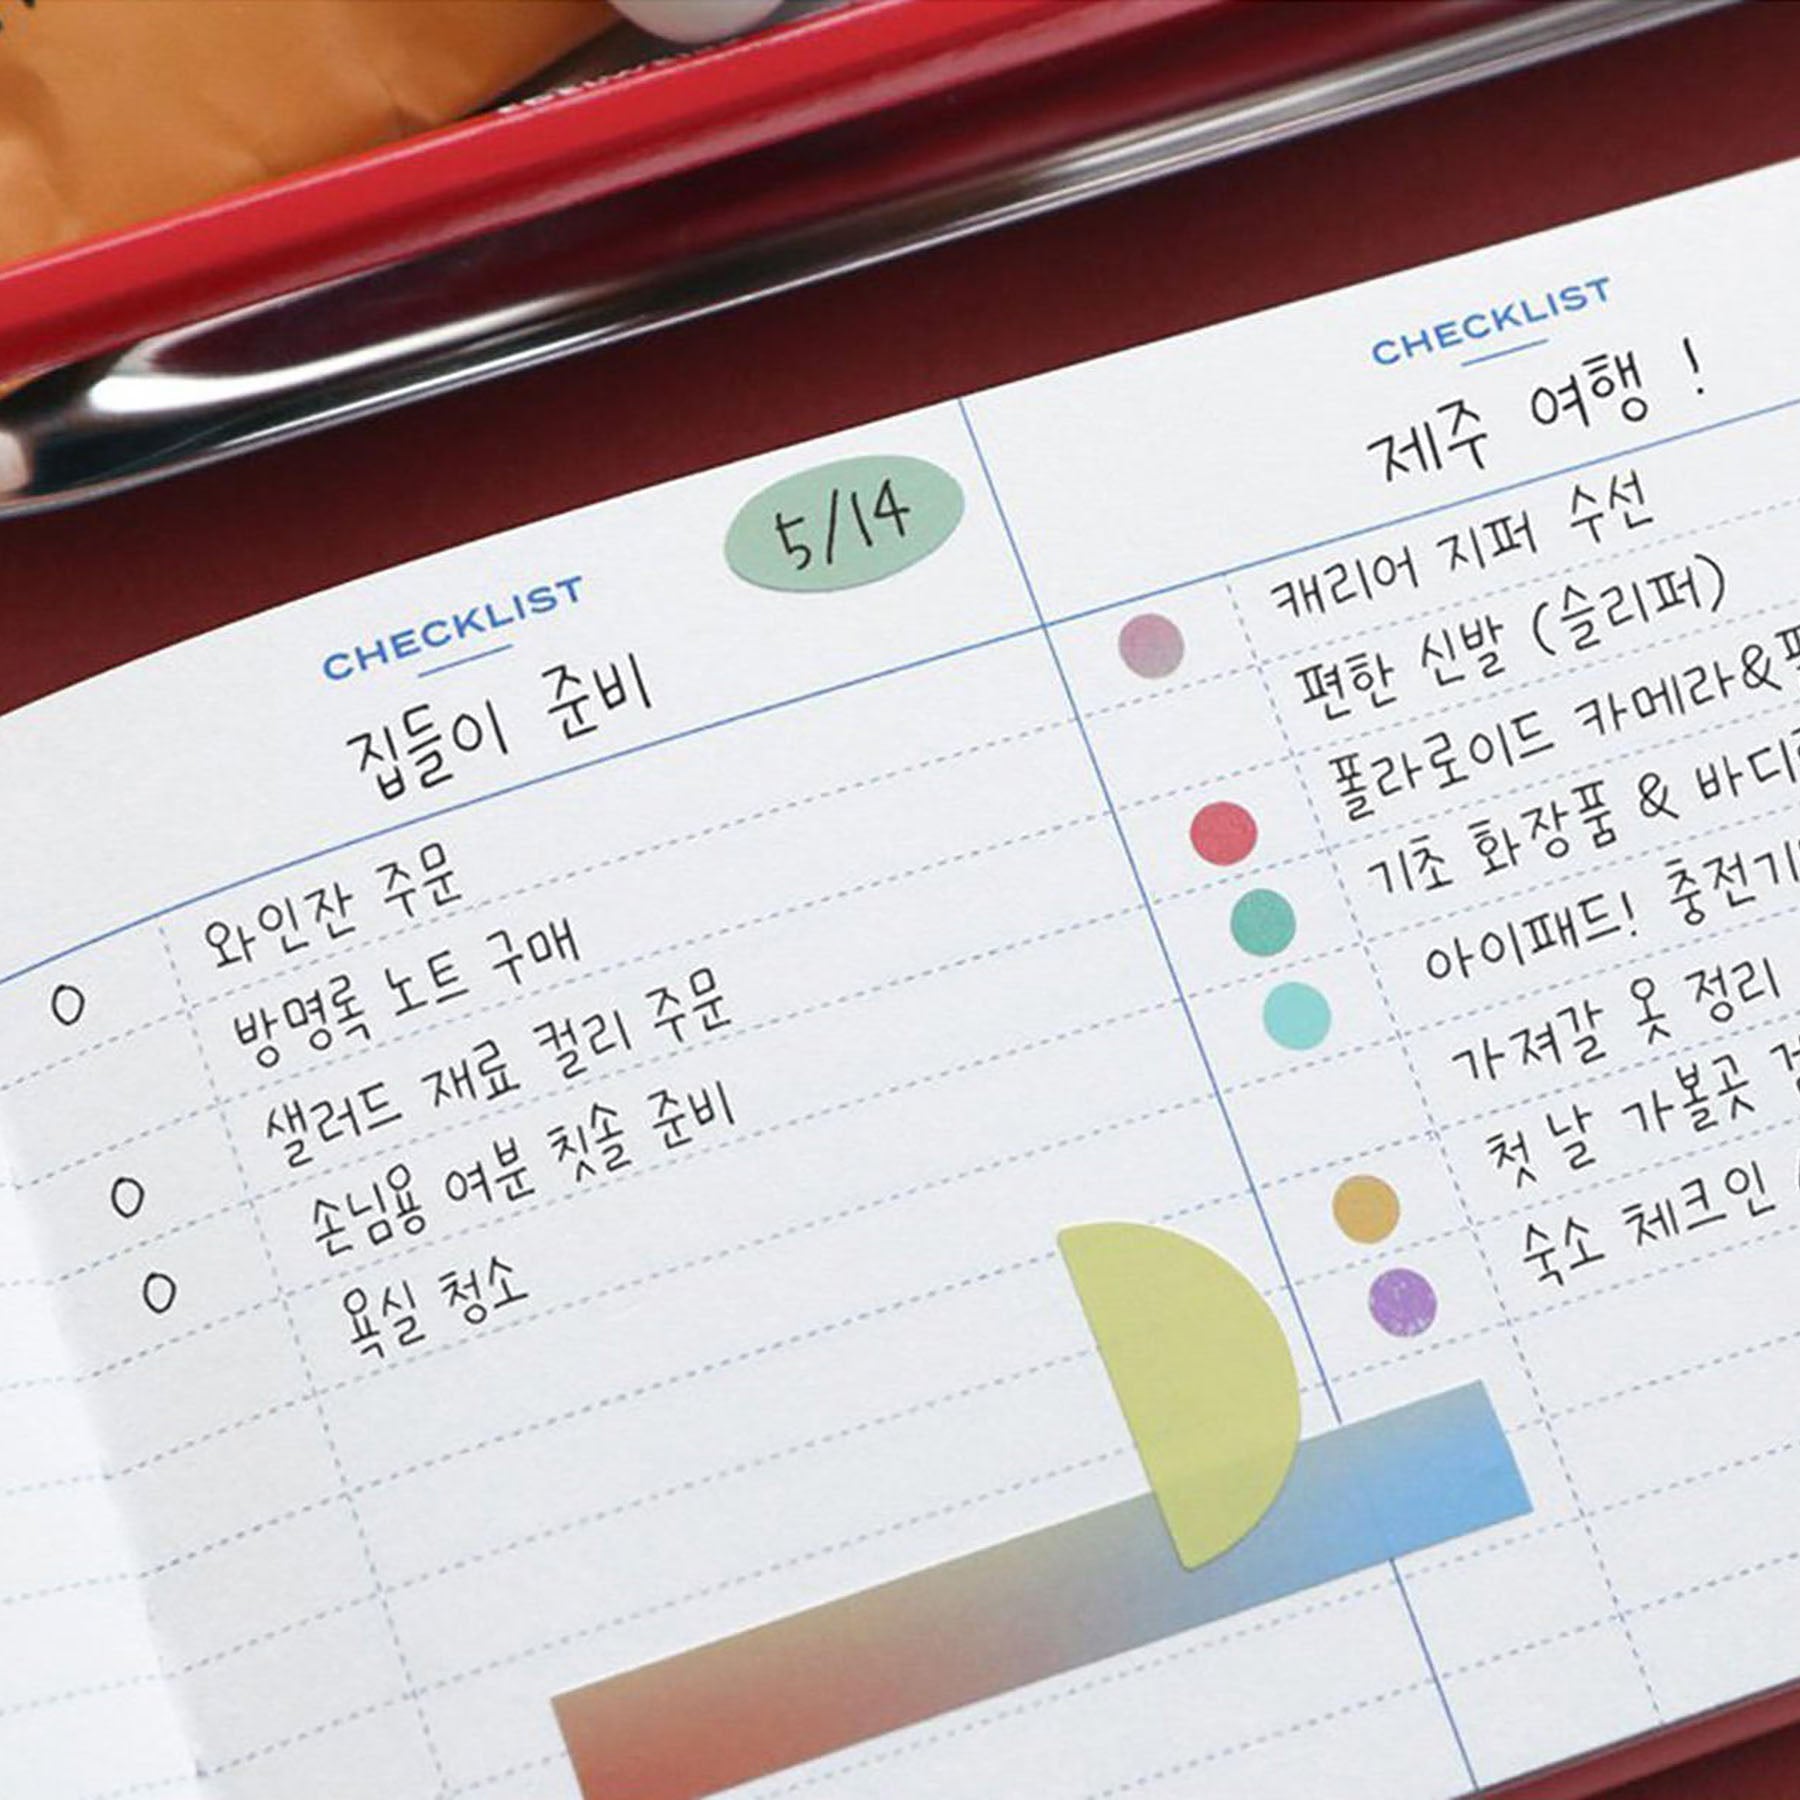 5/14
CHECKLIST
집들이 준비
와인잔 주문
방명록 노트 구매
샐러드 재료 컬리 주문
손님용 여분 칫솔 준비
욕실 청소
CHECKLIST
제주 여행 !
캐리어 지퍼 수선
편한 신발 (슬리퍼)
폴라로이드 카메라&
기초 화장품 & 바디
아이패드! 충전기
가져갈 옷 정리
첫 날 가볼곳
숙소 체크인